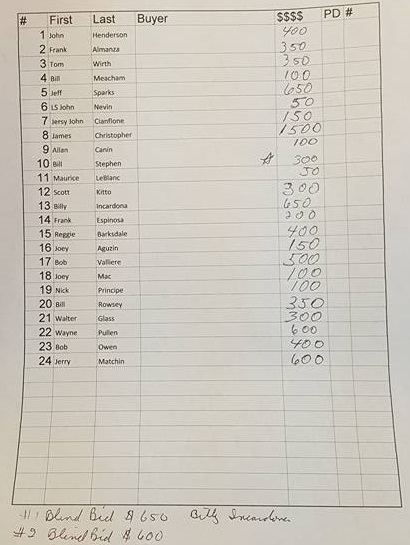 # First Last Buyer $$$$ PD #
1 John Henderson 400
2 Frank Almanza 350
3 Tom Wirth 350
4 Bill Meacham 100
5 Jeff Sparks 650
6 LS John Nevin 50
7 Jersy John Cianflone 150
8 James Christopher 1500
9 Allan Canin 100
10 Bill Stephen 300
11 Maurice LeBlanc 50
12 Scott Kitto 300
13 Billy Incardona 650
14 Frank Espinosa 200
15 Reggie Barksdale 400
16 Joey Aguzin 150
17 Bob Valliere 500
18 Joey Mac 100
19 Nick Principe 100
20 Bill Rowsey 350
21 Walter Glass 300
22 Wayne Pullen 600
23 Bob Owen 400
24 Jerry Matchin 600
#1 Blind Bid $650 Billy Incardona
#2 Blind Bid $600